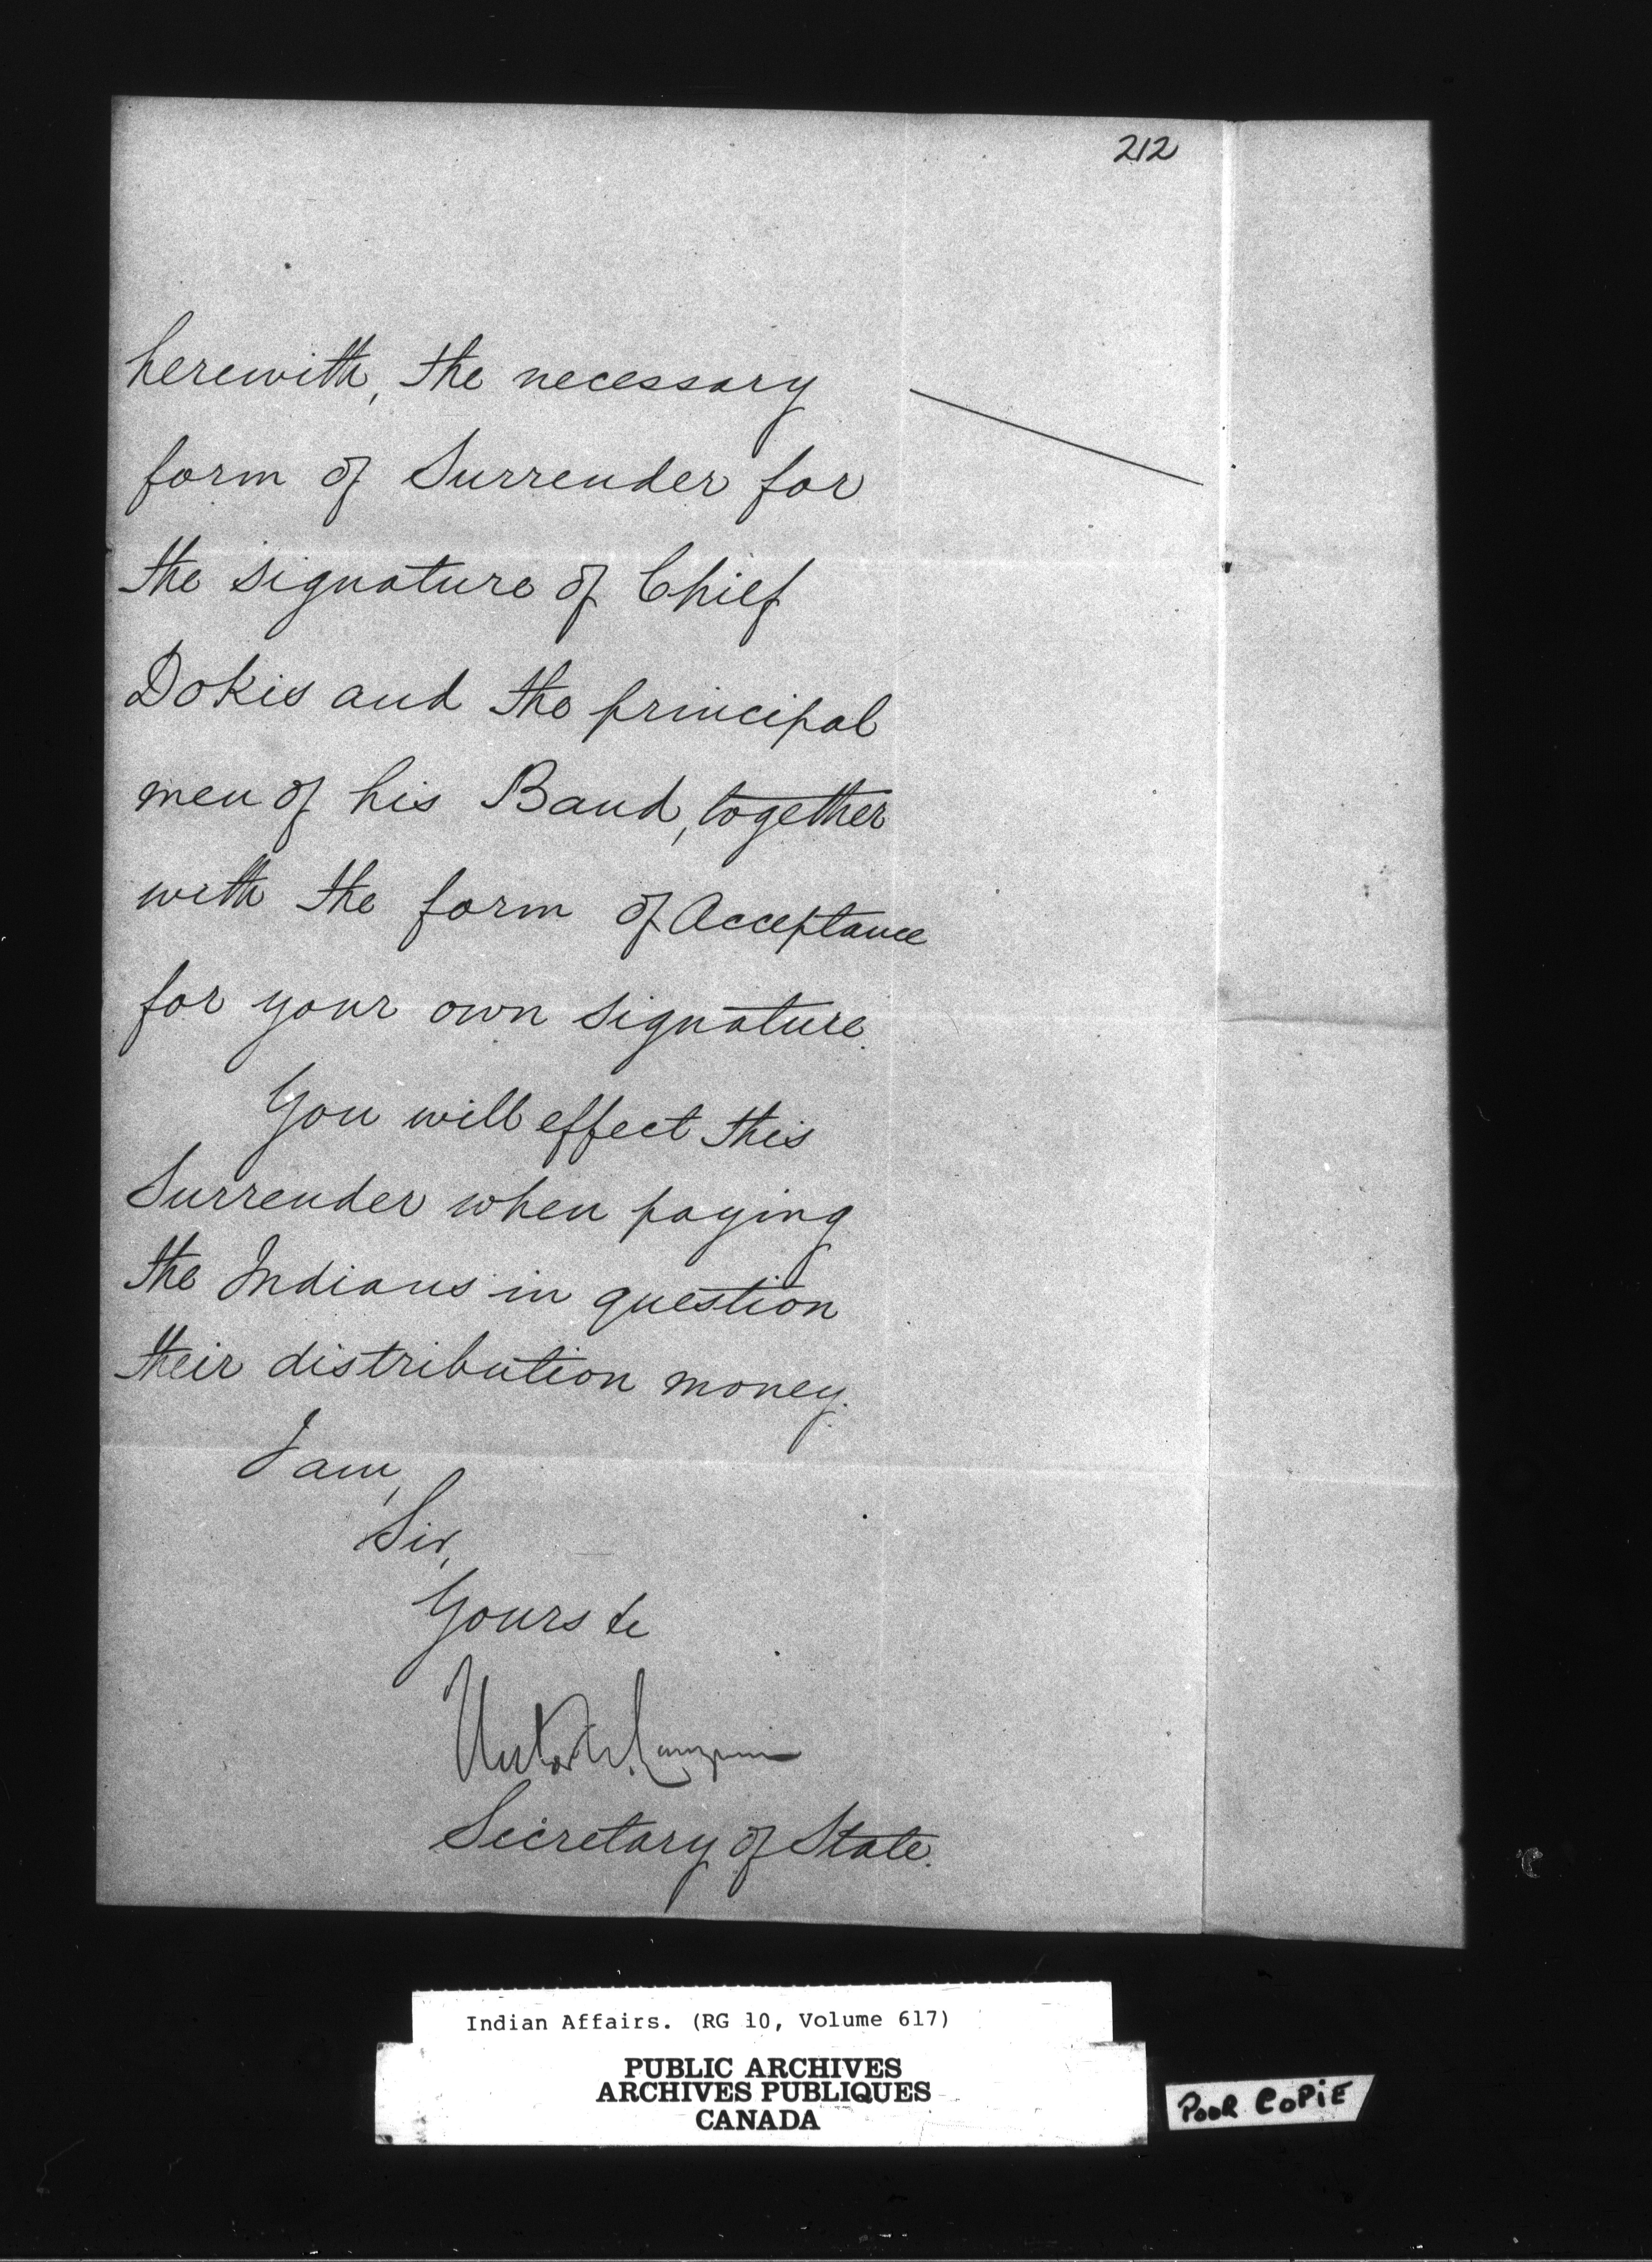 212
herewith, the necessary
form of Surrender for
the signature of Chief
Dokis and the principal
men of his Band, together
with the form of Acceptance
for your own signature.
You will effect this
Surrender when paying
the Indians in question
their distribution money.
I am,
Sir,
Yours &c
Secretary of State.
Indian Affairs. (RG 10, Volume 617)
PUBLIC ARCHIVES
ARCHIVES PUBLIQUES
CANADA
POOR COPiE